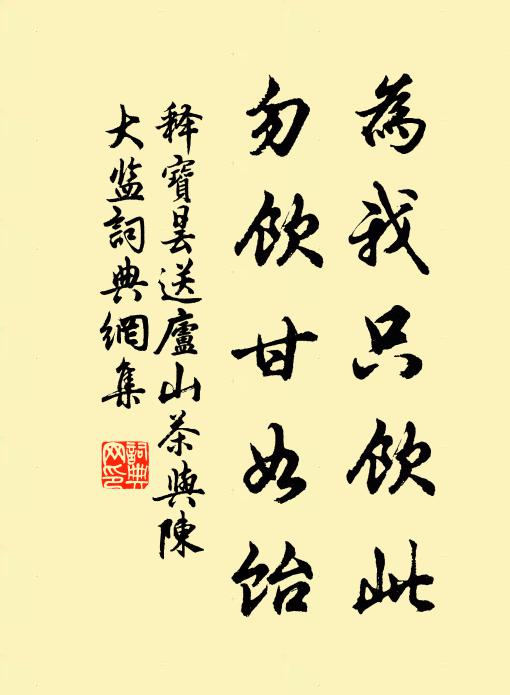 為我只飲此
勿飲甘如飴
釋寶曇送廬山茶與陳
大监詞典網集
詞典
网印